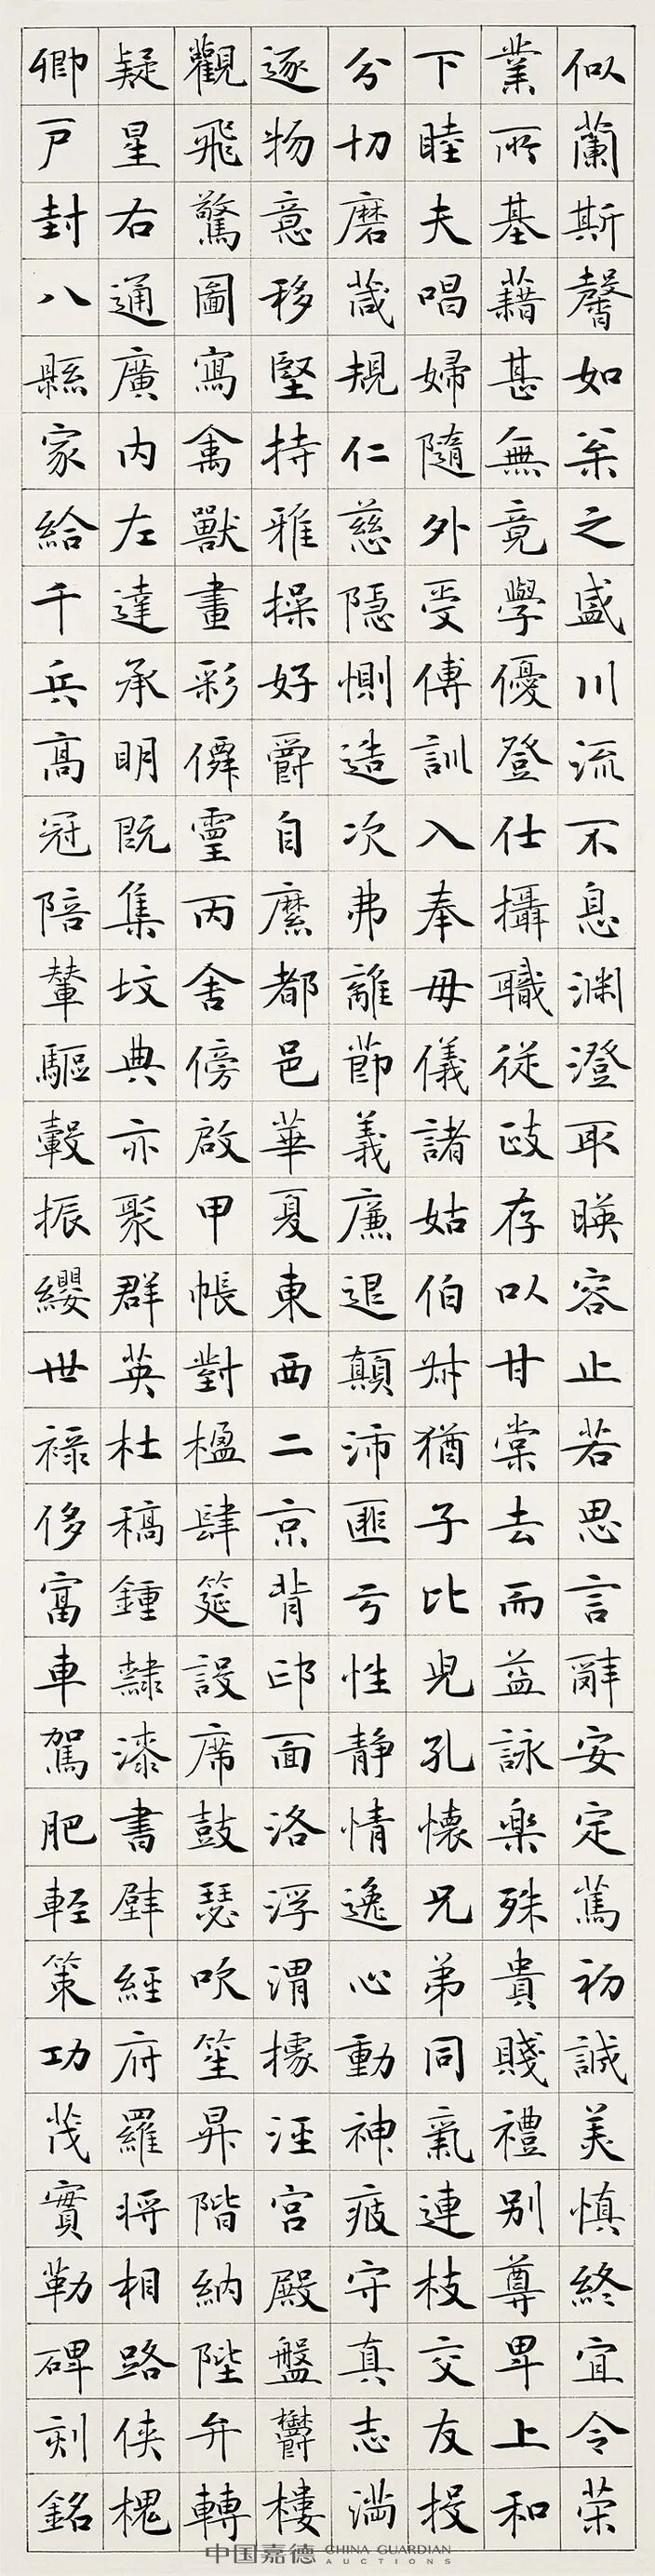 似蘭斯馨如枀之盛川流不息渊澄取暎容止若思言辭安定篤初誠美慎終宜令荣
業所基藉甚無竟學優登仕攝職従政存以甘棠去而益詠楽殊貴賤禮别尊卑上和
下睦夫唱婦隨外受傅訓入奉毋儀諸姑伯叔猶子比児孔懐兄弟同氣連枝交友投
分切磨葴規仁慈隠惻造次弗離節義廉退顛沛匪亏性静情逸心動神疲守真志満
逐物意移堅持雅操好爵自縻都邑華夏東西二京背邙面洛浮渭據涇宮殿盤欝樓
觀飛驚圖寫禽獸畫彩僊靈丙舍傍啟甲帳對楹肆筵設席鼓瑟吹笙昇階納陛弁轉
疑星右通廣内左達承明既集坟典亦聚群英杜稿鍾隸漆書壁經府羅将相路侠槐
卿戸封八縣家給千兵高冠陪輦驅轂振纓世禄侈富車駕肥輕策功茂實勒碑刻銘
中国嘉德 CHINA GUARDIAN
AUCTIONS